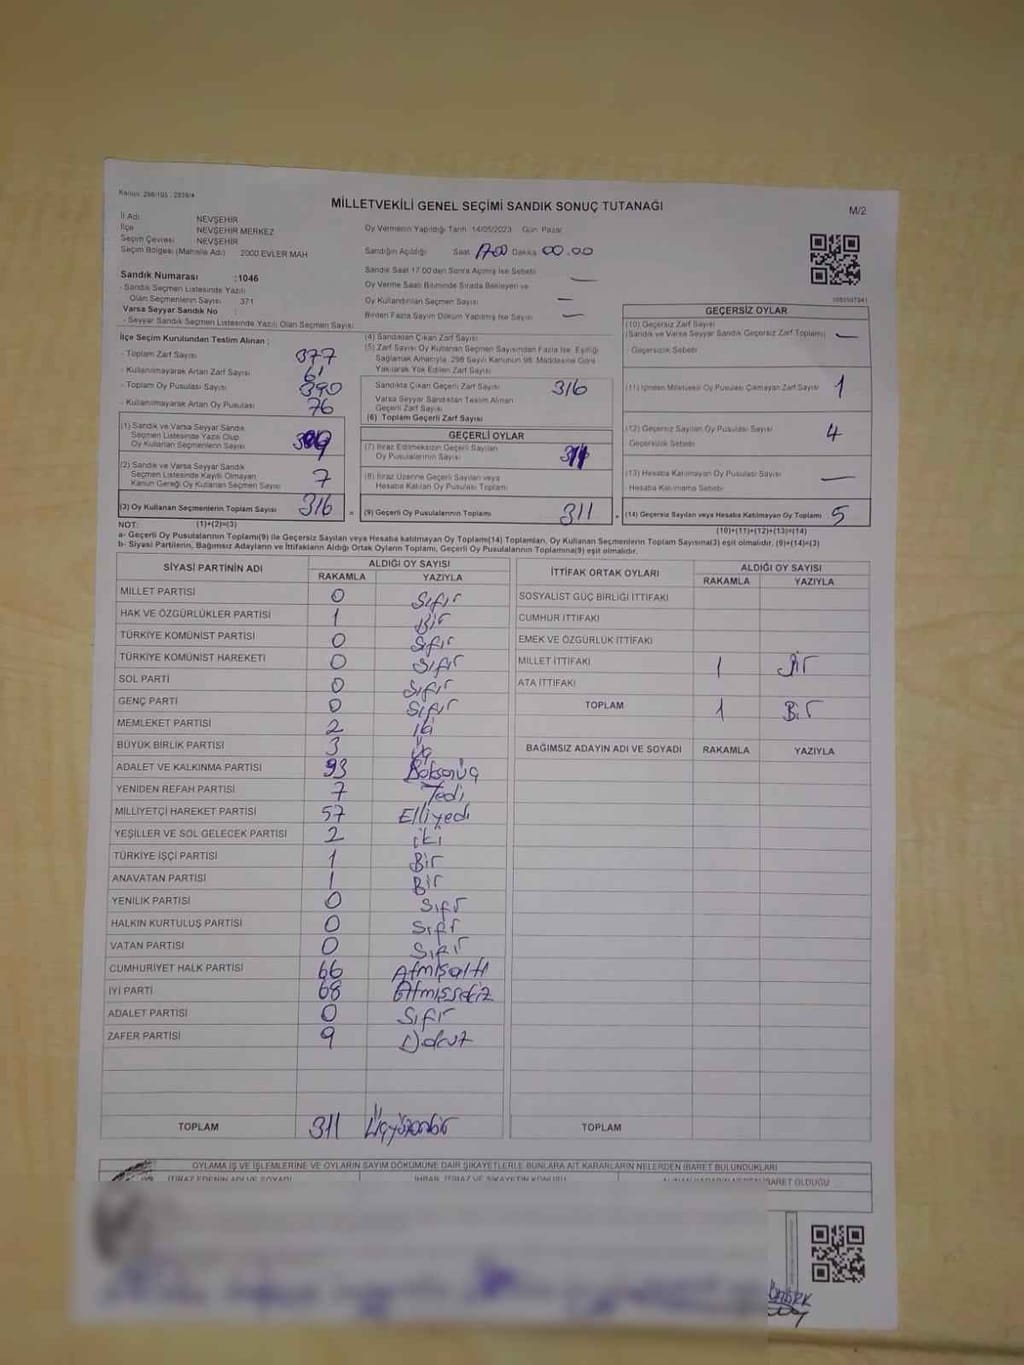 Kanun: 298/105 - 2839/4
MİLLETVEKİLİ GENEL SEÇİMİ SANDIK SONUÇ TUTANAĞI
M/2
İl Adı NEVŞEHİR
İlçe NEVŞEHİR MERKEZ
Seçim Çevresi NEVŞEHİR
Seçim Bölgesi (Mahalle Adı) 2000 EVLER MAH
Sandık Numarası :1046
- Sandık Seçmen Listesinde Yazılı
Olan Seçmenlerin Sayısı 371
Varsa Seyyar Sandık No :
- Seyyar Sandık Seçmen Listesinde Yazılı Olan Seçmen Sayısı
Oy Vermenin Yapıldığı Tarih 14/05/2023 Gün Pazar
Sandığın Açıldığı Saat 17.00 Dakika 00.00
Sandık Saat 17.00'den Sonra Açılmış İse Sebebi —
Oy Verme Saati Bitiminde Sırada Bekleyen ve
Oy Kullandırılan Seçmen Sayısı —
Birden Fazla Sayım Döküm Yapılmış İse Sayısı —
İlçe Seçim Kurulundan Teslim Alınan :
- Toplam Zarf Sayısı 377
- Kullanılmayarak Artan Zarf Sayısı 61
- Toplam Oy Pusulası Sayısı 390
- Kullanılmayarak Artan Oy Pusulası 76
(1) Sandık ve Varsa Seyyar Sandık
Seçmen Listesinde Yazılı Olup
Oy Kullanan Seçmenlerin Sayısı 309
(2) Sandık ve Varsa Seyyar Sandık
Seçmen Listesinde Kayıtlı Olmayan
Kanun Gereği Oy Kullanan Seçmen Sayısı 7
(3) Oy Kullanan Seçmenlerin Toplam Sayısı 316
(1)+(2)=(3)
(4) Sandıktan Çıkan Zarf Sayısı
(5) Zarf Sayısı Oy Kullanan Seçmen Sayısından Fazla İse, Eşitliği
Sağlamak Amacıyla, 298 Sayılı Kanunun 98. Maddesine Göre
Yakılarak Yok Edilen Zarf Sayısı
Sandıkta Çıkan Geçerli Zarf Sayısı 316
Varsa Seyyar Sandıktan Teslim Alınan
Geçerli Zarf Sayısı
(6) Toplam Geçerli Zarf Sayısı
GEÇERLİ OYLAR
(7) İtiraz Edilmeksizin Geçerli Sayılan
Oy Pusulalarının Sayısı 311
(8) İtiraz Üzerine Geçerli Sayılan veya
Hesaba Katılan Oy Pusulası Toplamı
(9) Geçerli Oy Pusulalarının Toplamı 311
GEÇERSİZ OYLAR
(10) Geçersiz Zarf Sayısı
(Sandık ve Varsa Seyyar Sandık Geçersiz Zarf Toplamı) —
Geçersizlik Sebebi
(11) İçinden Milletvekili Oy Pusulası Çıkmayan Zarf Sayısı 1
(12) Geçersiz Sayılan Oy Pusulası Sayısı 4
Geçersizlik Sebebi
(13) Hesaba Katılmayan Oy Pusulası Sayısı —
Hesaba Katılmama Sebebi
+ (14) Geçersiz Sayılan veya Hesaba Katılmayan Oy Toplamı 5
(10)+(11)+(12)+(13)=(14)
NOT:
a- Geçerli Oy Pusulalarının Toplamı(9) ile Geçersiz Sayılan veya Hesaba katılmayan Oy Toplamı(14) Toplamları, Oy Kullanan Seçmenlerin Toplam Sayısına(3) eşit olmalıdır. (9)+(14)=(3)
b- Siyasi Partilerin, Bağımsız Adayların ve İttifakların Aldığı Ortak Oyların Toplamı, Geçerli Oy Pusulalarının Toplamına(9) eşit olmalıdır.
SİYASİ PARTİNİN ADI ALDIĞI OY SAYISI
RAKAMLA YAZIYLA
MİLLET PARTİSİ 0 Sıfır
HAK VE ÖZGÜRLÜKLER PARTİSİ 1 Bir
TÜRKİYE KOMÜNİST PARTİSİ 0 Sıfır
TÜRKİYE KOMÜNİST HAREKETİ 0 Sıfır
SOL PARTİ 0 Sıfır
GENÇ PARTİ 0 Sıfır
MEMLEKET PARTİSİ 2 İki
BÜYÜK BİRLİK PARTİSİ 3 Üç
ADALET VE KALKINMA PARTİSİ 93
YENİDEN REFAH PARTİSİ 7 Yedi
MİLLİYETÇİ HAREKET PARTİSİ 57 Elliyedi
YEŞİLLER VE SOL GELECEK PARTİSİ 2 iki
TÜRKİYE İŞÇİ PARTİSİ 1 Bir
ANAVATAN PARTİSİ 1 Bir
YENİLİK PARTİSİ 0 Sıfır
HALKIN KURTULUŞ PARTİSİ 0 Sıfır
VATAN PARTİSİ 0 Sıfır
CUMHURİYET HALK PARTİSİ 66 Atmışaltı
İYİ PARTİ 68 Atmışsekiz
ADALET PARTİSİ 0 Sıfır
ZAFER PARTİSİ 9 Dokuz
TOPLAM 311 Üçyüzonbir
İTTİFAK ORTAK OYLARI ALDIĞI OY SAYISI
RAKAMLA YAZIYLA
SOSYALİST GÜÇ BİRLİĞİ İTTİFAKI
CUMHUR İTTİFAKI
EMEK VE ÖZGÜRLÜK İTTİFAKI
MİLLET İTTİFAKI 1 Bir
ATA İTTİFAKI
TOPLAM 1 Bir
BAĞIMSIZ ADAYIN ADI VE SOYADI RAKAMLA YAZIYLA
TOPLAM
OYLAMA İŞ VE İŞLEMLERİNE VE OYLARIN SAYIM DÖKÜMÜNE DAİR ŞİKAYETLERLE BUNLARA AİT KARARLARIN NELERDEN İBARET BULUNDUKLARI